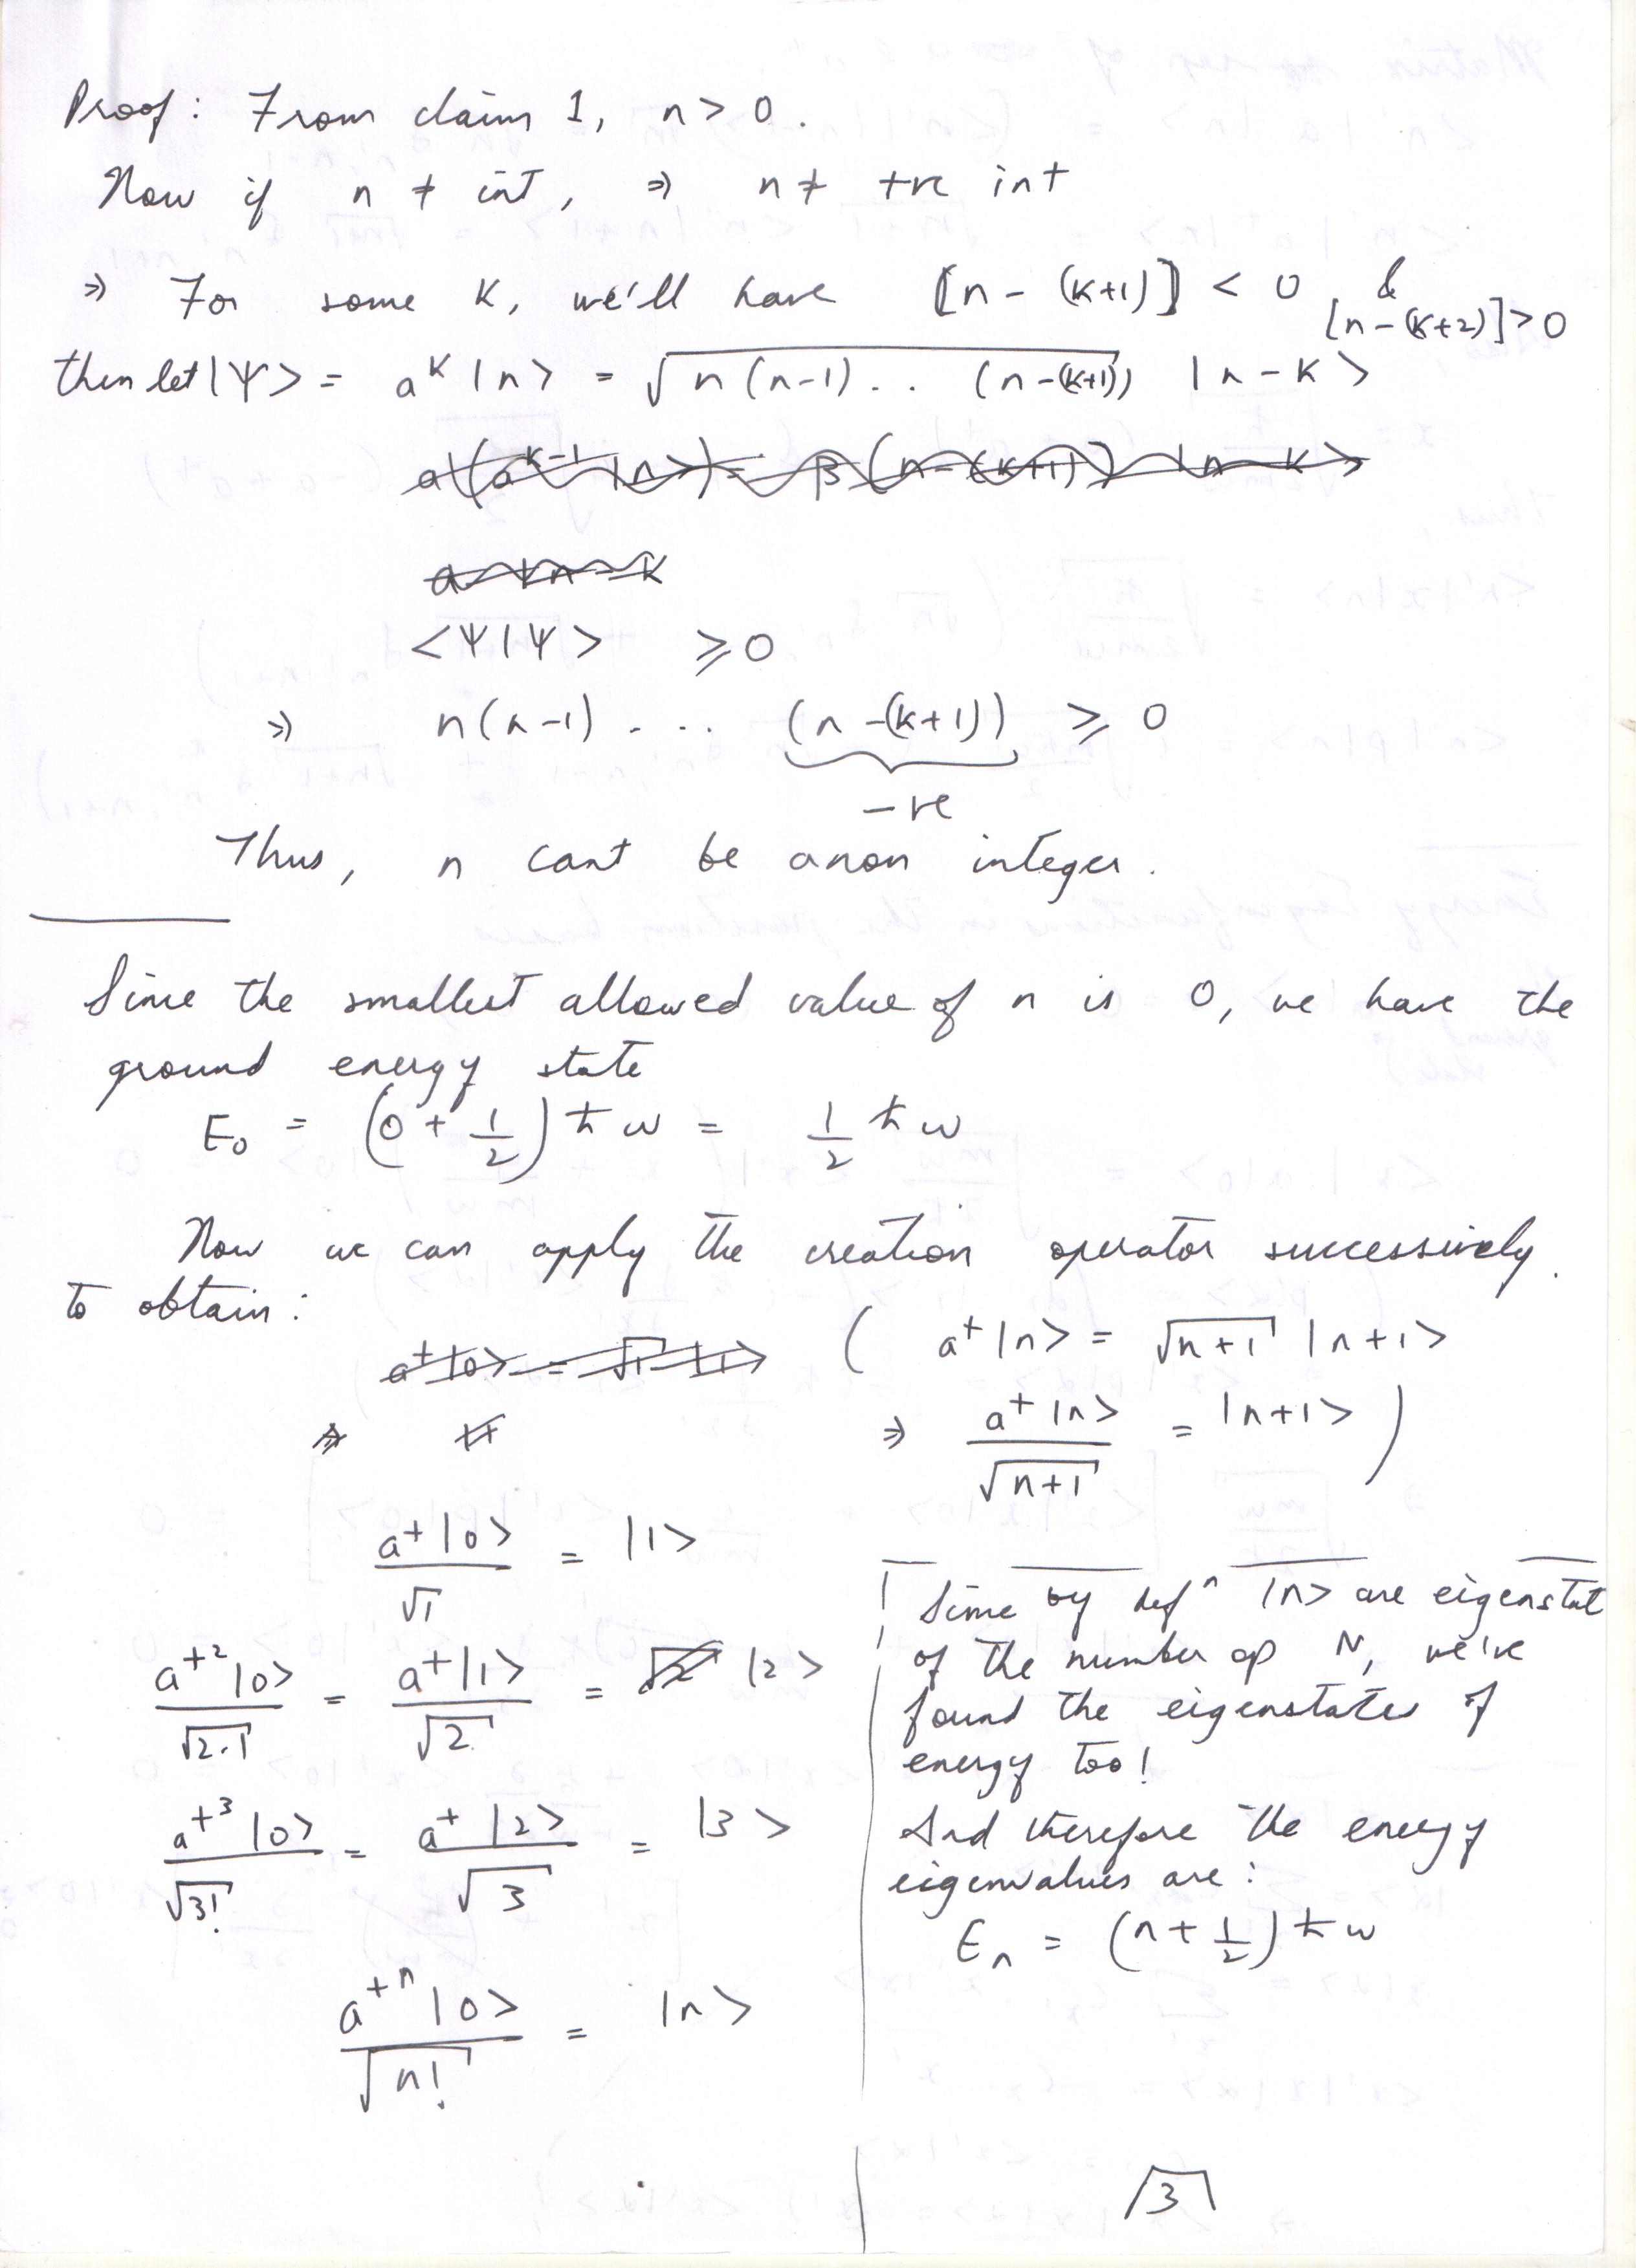 Proof: From claim 1, n > 0.
Now if n ≠ int, ⇒ n ≠ +ve int
⇒ For some K, we'll have [n - (K+1)] < 0 &
[n-(K+2)] > 0
then let |Ψ> = a^K |n> = √(n (n-1) . . (n-(K+1))) |n-K>
a(a^{K-1} |n>) = β (n-(K+1)) |n-K>
a |n-K
<Ψ|Ψ> ≥ 0
⇒ n(n-1) . . . (n-(K+1)) ≥ 0
-ve
Thus, n cant be a non integer.
Since the smallest allowed value of n is 0, we have the
ground energy state
E₀ = (0 + 1/2) ħω = 1/2 ħω
Now we can apply the creation operator successively.
to obtain:
a⁺|0> = √1 |1> ( a⁺|n> = √(n+1) |n+1>
⇒ ⇒ a⁺|n>/√(n+1) = |n+1> )
a⁺|0>/√1 = |1>
a⁺²|0>/√(2.1) = a⁺|1>/√2 = √2 |2>
a⁺³|0>/√3! = a⁺|2>/√3 = |3>
a⁺ⁿ|0>/√n! = |n>
Since by defⁿ |n> are eigenstat
of the number op N, we've
found the eigenstates of
energy too!
And therefore the energy
eigenvalues are:
Eₙ = (n + 1/2) ħω
3